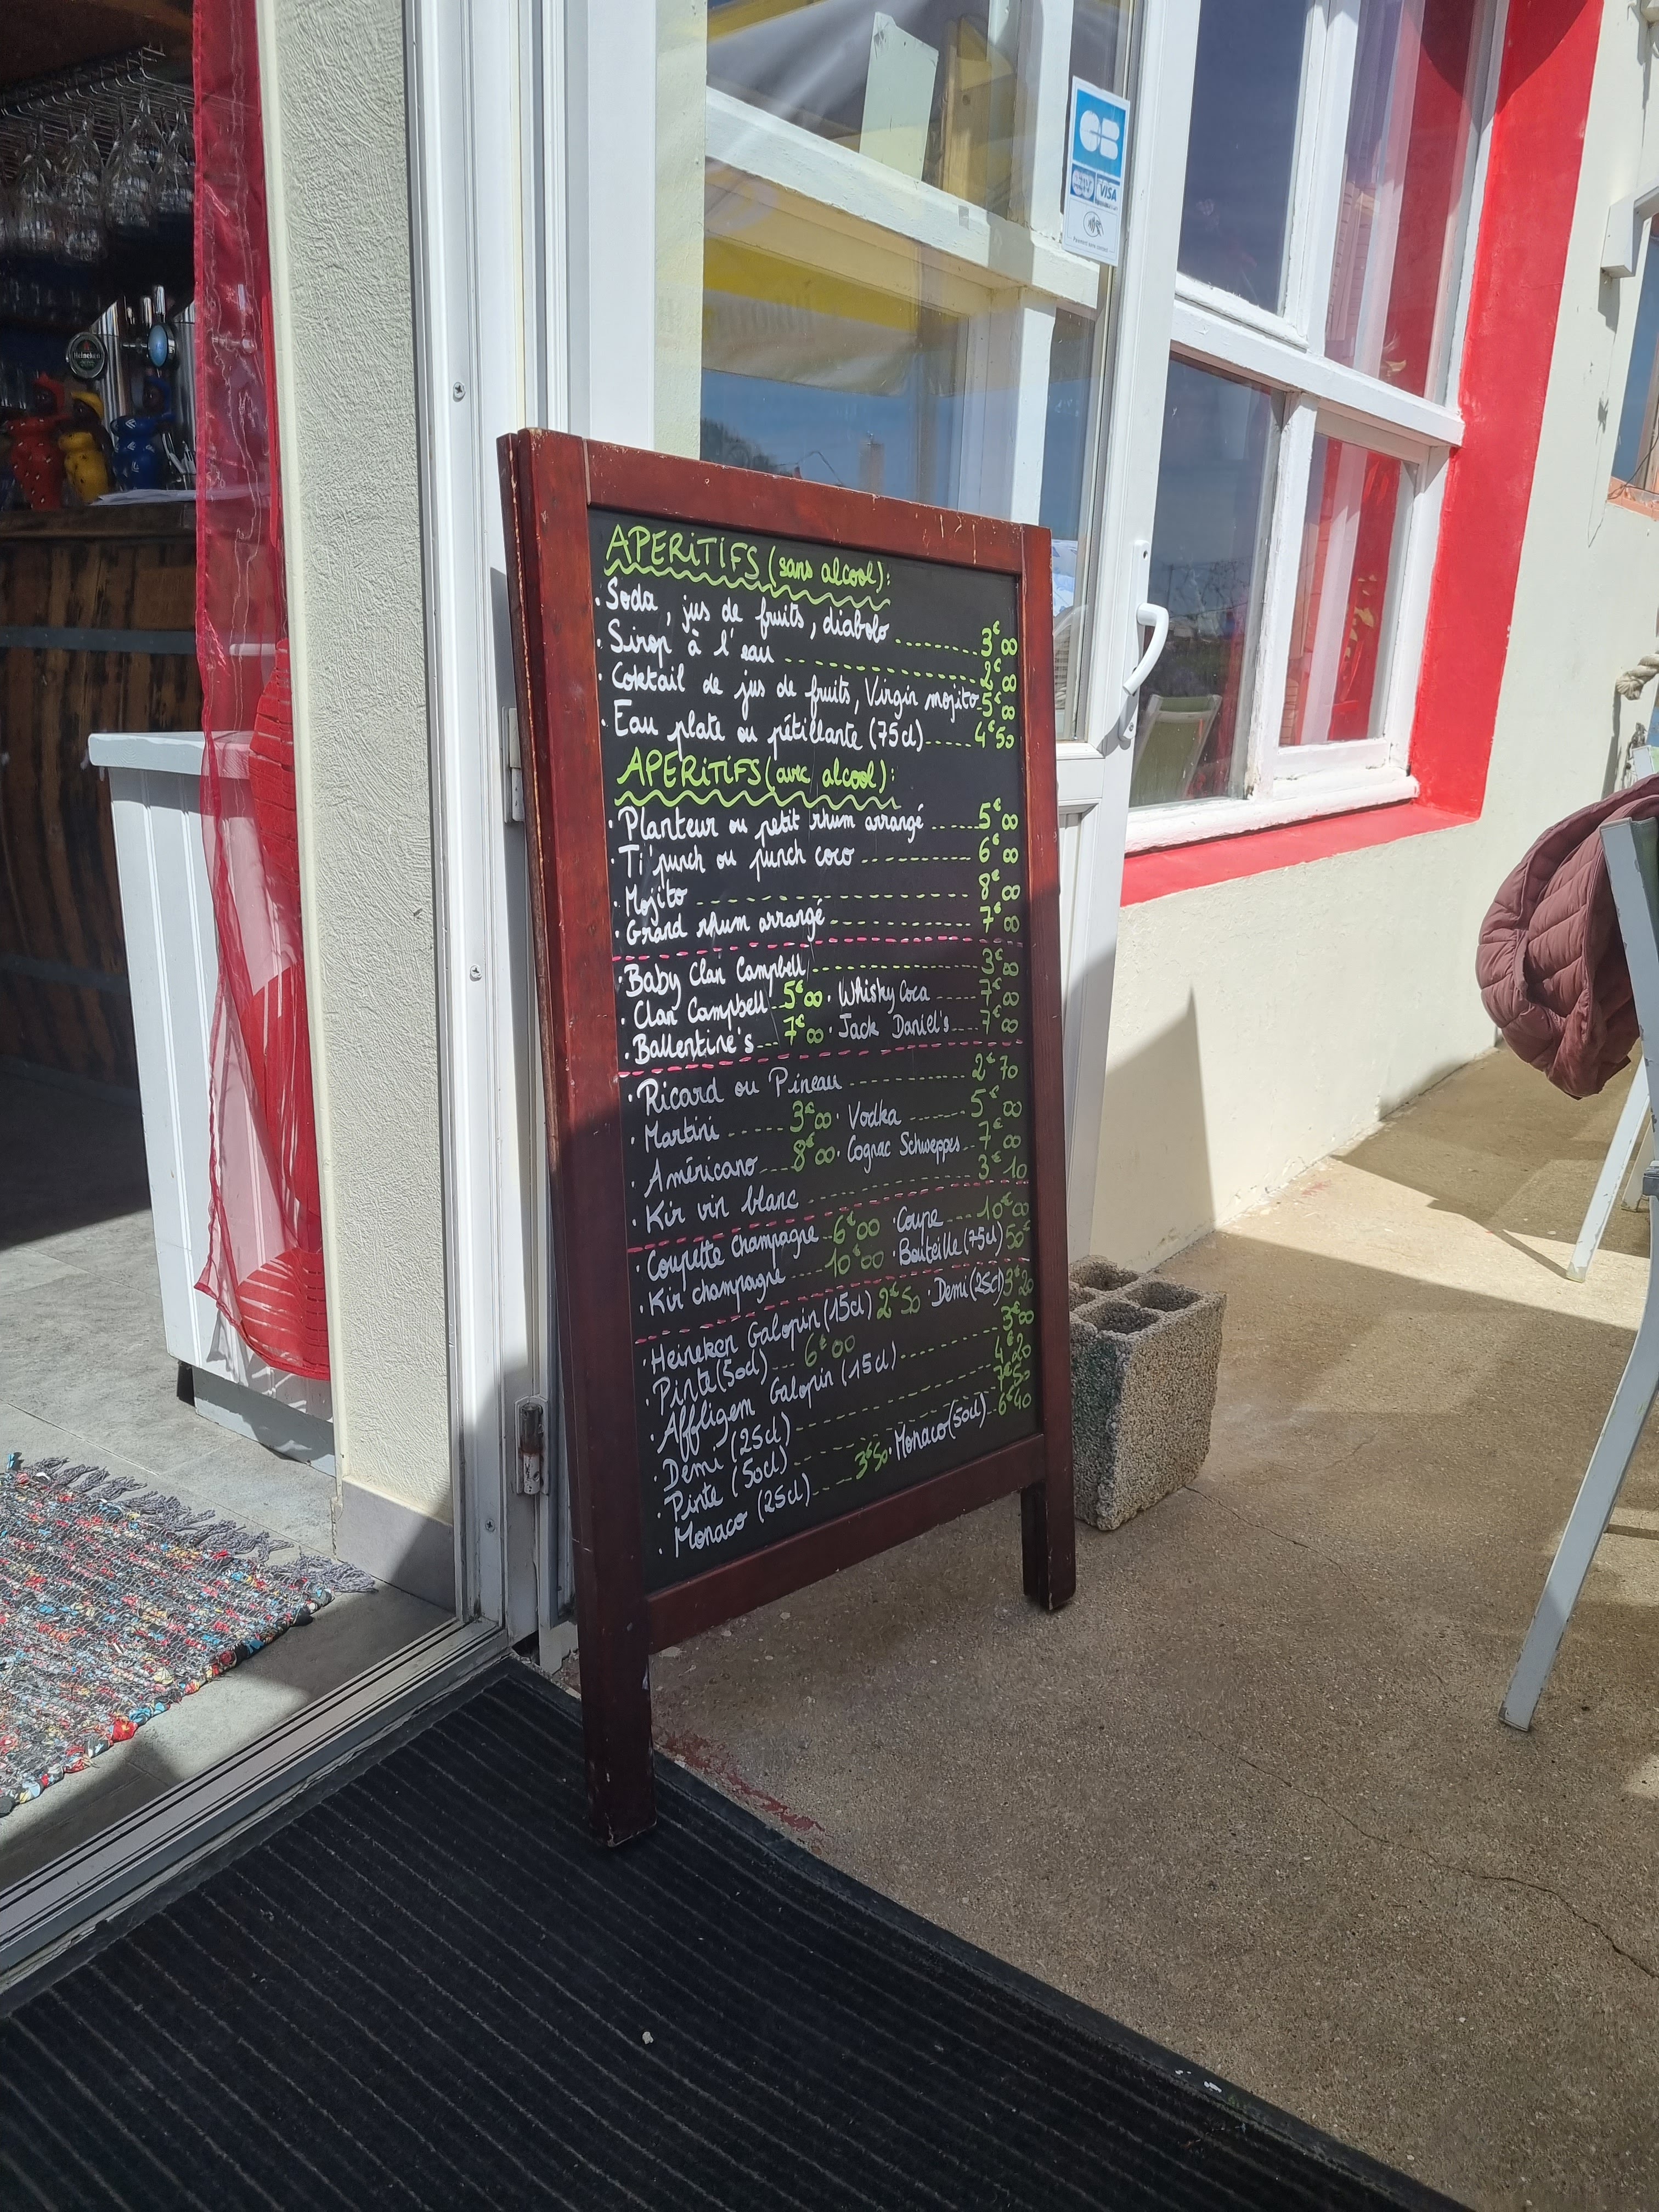 CB
VISA
Heineken
APERITIFS (sans alcool):
· Soda, jus de fruits, diabolo ........ 3€00
· Sirop à l'eau ........ 2€00
· Coktail de jus de fruits, Virgin mojito 5€00
· Eau plate ou pétillante (75cl) ..... 4€50
APERITIFS (avec alcool):
· Planteur ou petit rhum arrangé ...... 5€00
· Ti'punch ou punch coco ........ 6€00
· Mojito ........ 8€00
· Grand rhum arrangé ........ 7€00
· Baby Clan Campbell ........ 3€00
· Clan Campbell .. 5€00 · Whisky Coca ..... 7€00
· Ballentine's ... 7€00 · Jack Daniel's .... 7€00
· Ricard ou Pineau ........ 2€70
· Martini ...... 3€00 · Vodka ....... 5€00
· Américano .... 8€00 · Cognac Schweppes .. 7€00
· Kir vin blanc ........ 3€10
· Coupette champagne .. 6€00 · Coupe .... 10€00
· Kir champagne .... 10€00 · Bouteille (75cl) 50€
· Heineken Galopin (15cl) 2€50 · Demi (25cl) 3€20
· Pinte (50cl) ... 6€00
· Affligem Galopin (15cl) ........ 3€00
· Demi (25cl) ........ 4€20
· Pinte (50cl) ........ 7€50
· Monaco (25cl) .... 3€50 · Monaco (50cl) .. 6€40